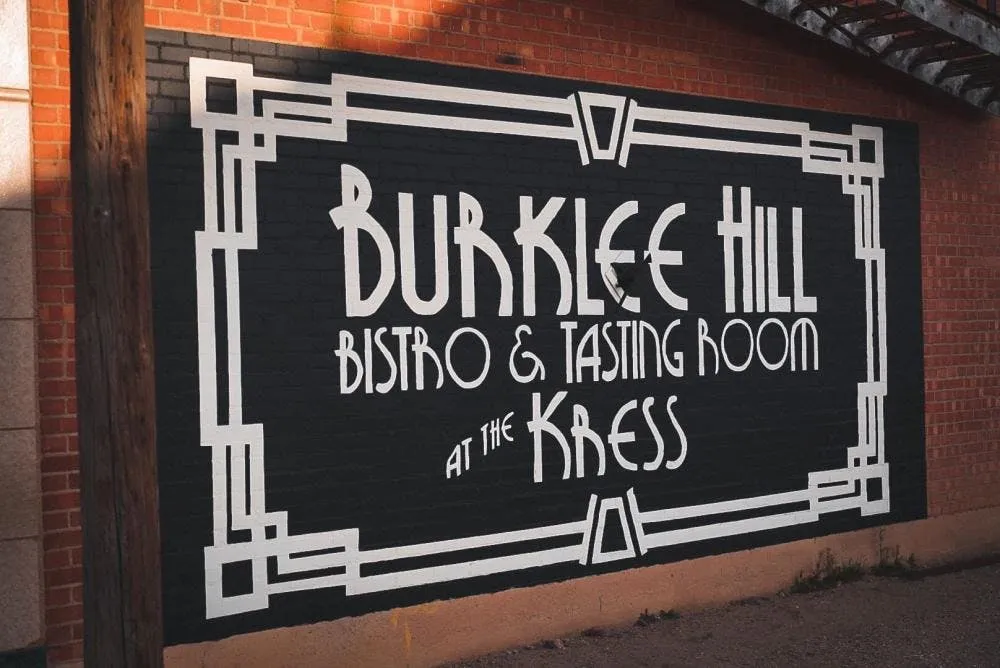 BURKLEE HILL
BISTRO & TASTING ROOM
AT THE KRESS